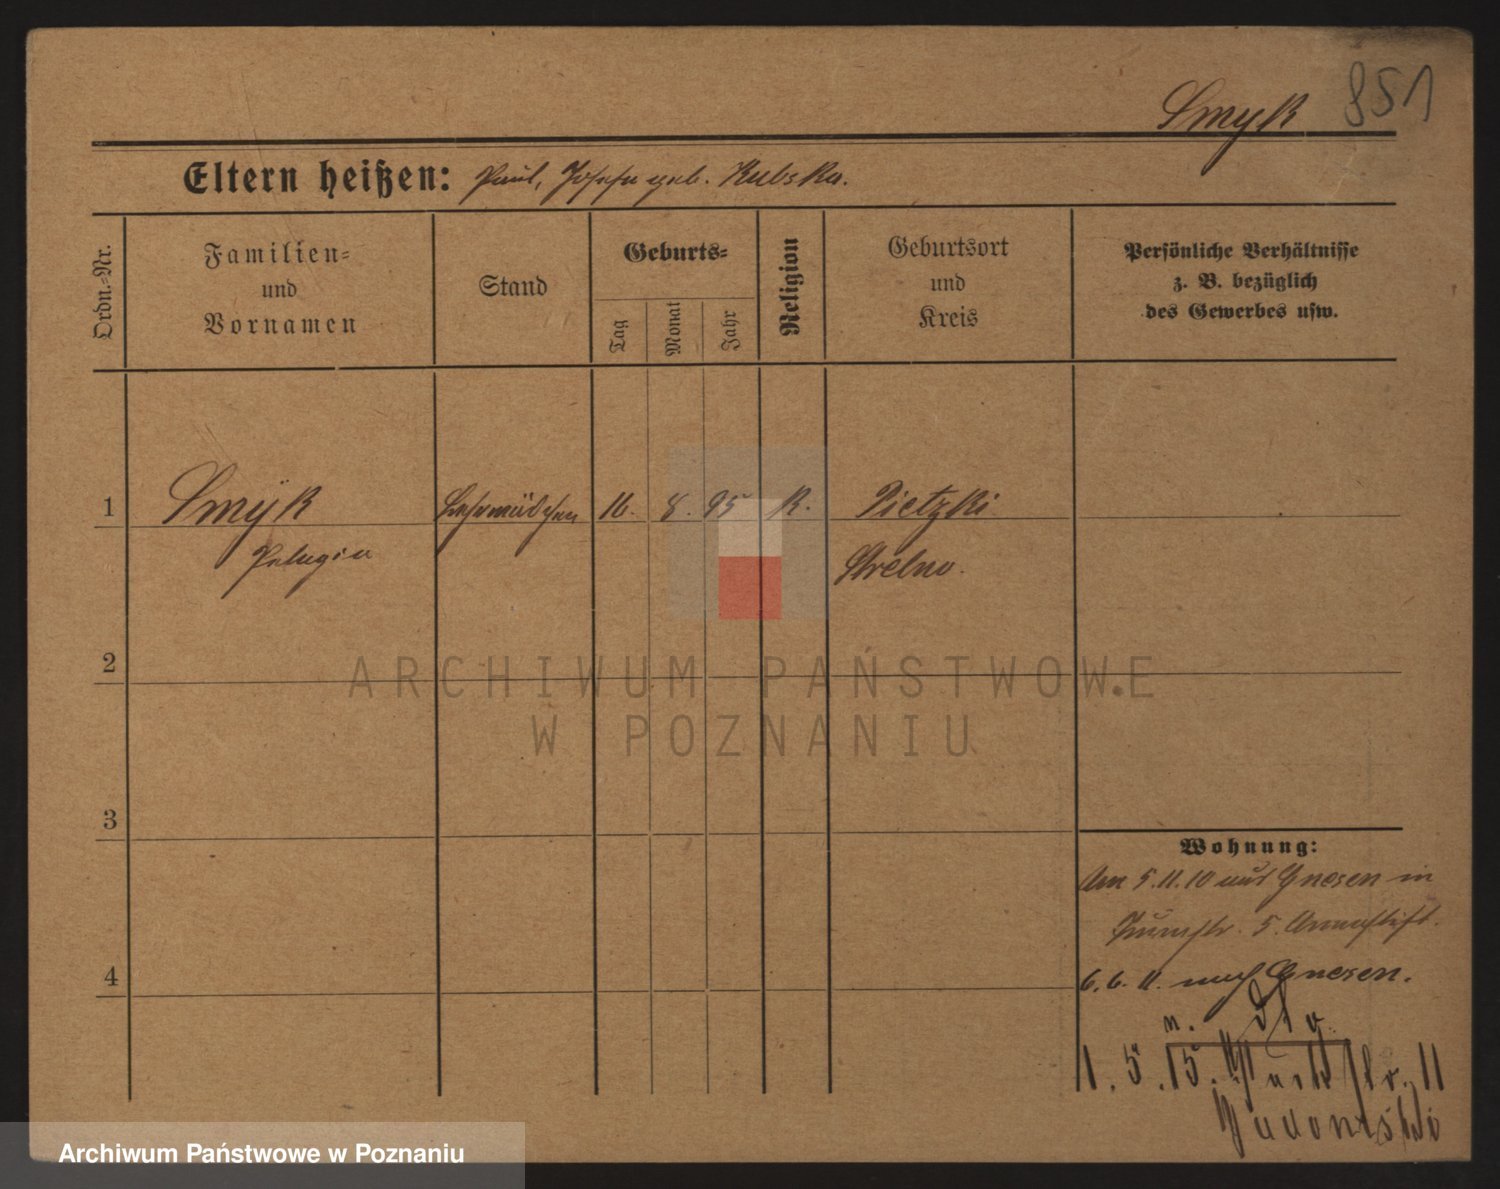 851
Smyk
Eltern heißen: Paul, Josefa geb. Kubska.
Ordn.-Nr.
Familien-
und
Vornamen
Stand
Geburts-
Tag
Monat
Jahr
Religion
Geburtsort
und
Kreis
Persönliche Verhältnisse
z. B. bezüglich
des Gewerbes usw.
1
Smyk Lehrmädchen 16. 8. 95 K. Pietzki
Pelagia Strelno.
2
ARCHIWUM PAŃSTWOWE
W POZNANIU
3
Wohnung:
Am 5.11.10 aus Gnesen in
5. Annastift.
4
6.6.11. nach Gnesen.
n.
1.5.15. 11
Archiwum Państwowe w Poznaniu